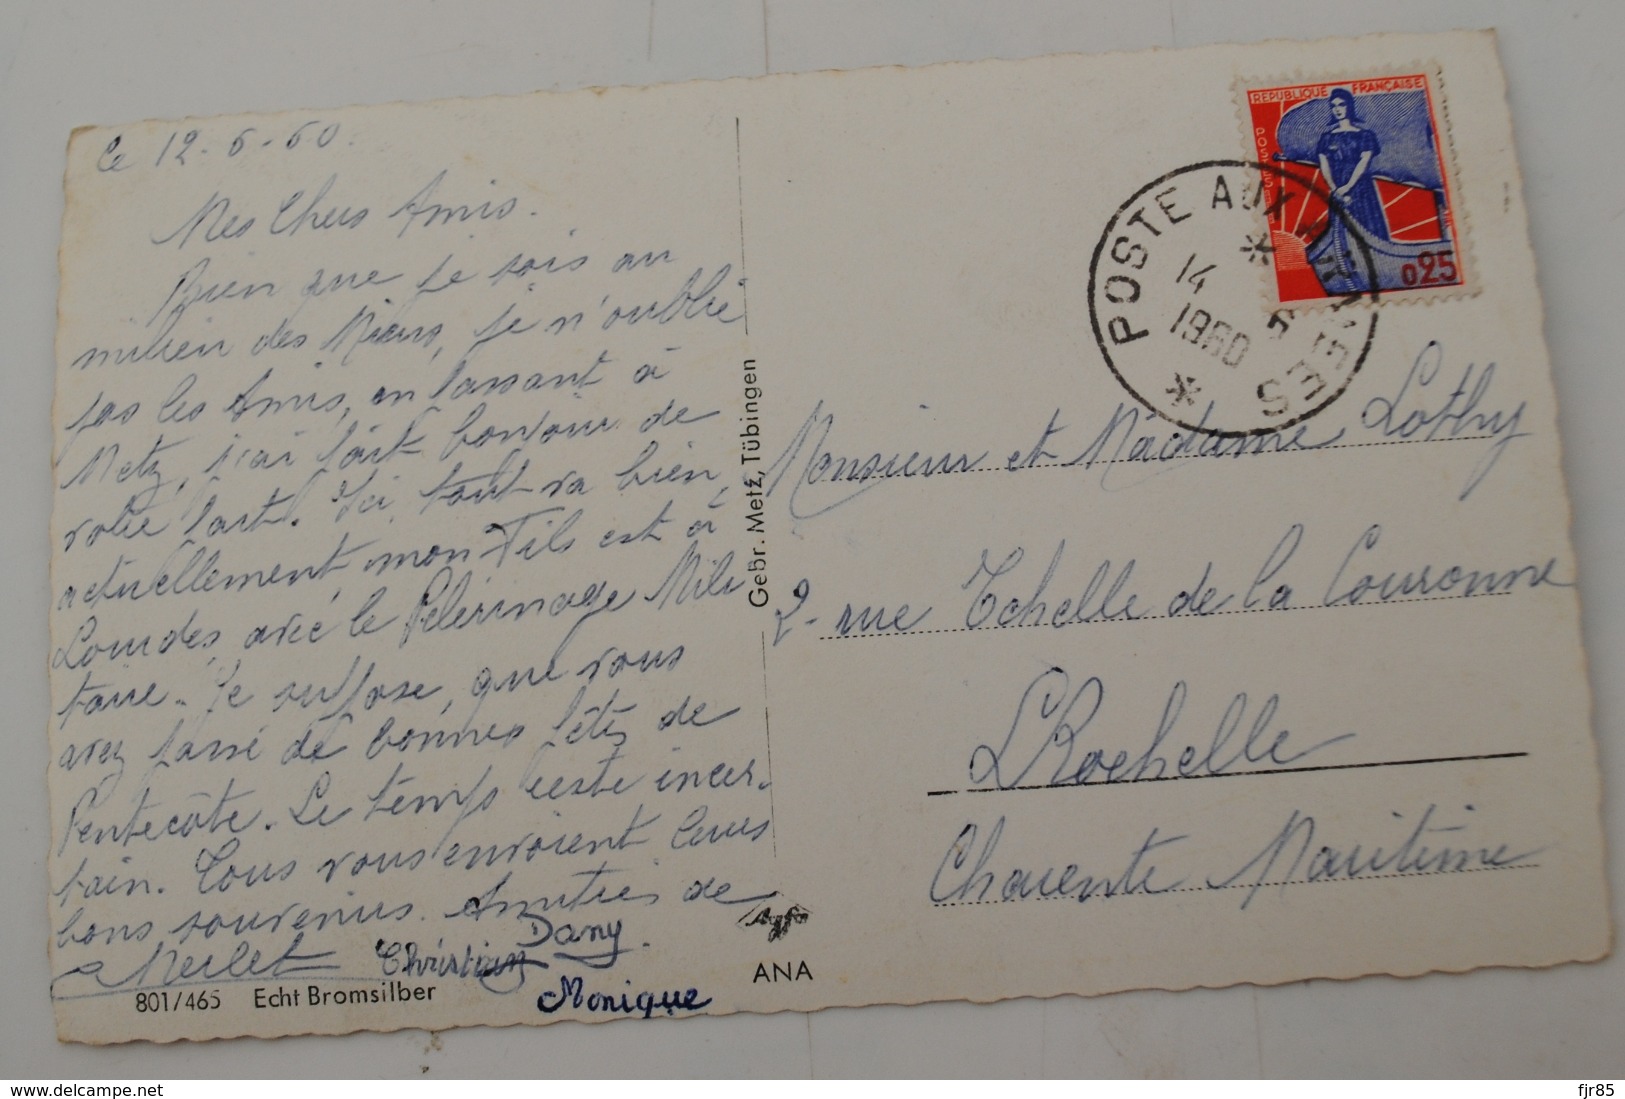 le 12-6-60.
Mes Chers Amis.
Bien que je sois au
milieu des Miens, je n'oublie
pas les Amis, en passant à
Metz, j'ai fait bonjour de
votre part. Ici tout va bien,
actuellement, mon Fils est à
Lourdes, avec le Pélérinage Mili
taire. Je suppose, que vous
avez passé de bonnes fêtes de
Pentecôte. Le temps reste incer-
tain. Tous vous envoient leurs
bons souvenirs. Amitiés de
Merlet Christian Dany.
Monique
801/465 Echt Bromsilber
Gebr. Metz, Tübingen
Agfa
ANA
REPUBLIQUE FRANÇAISE
POSTES
0,25
POSTE AUX ARMEES
14
6
1960
Monsieur et Madame Lothy
2- rue Echelle de la Couronne
La Rochelle
Charente Maritime
www.delcampe.net
fjr85